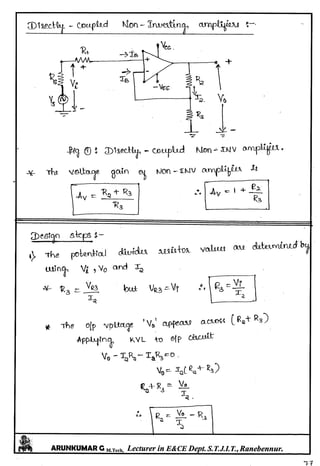 Directly - Coupled Non - Inverting amplifiers :-
R₁
→I_B
+Vcc
+
-
-Vcc
R_s
V_i
I_B
V_s
R₂
I₂
V₀
R₃
fig ① : Directly - coupled Non - INV amplifier.
* The voltage gain of Non - INV amplifier is
A_V = R₂ + R₃ / R₃
∴ A_V = 1 + R₂ / R₃
Design steps :-
1) The potential divider resistor values are determined by
using V_i , V₀ and I₂
* R₃ = V_R3 / I₂ but V_R3 = V_i ∴ R₃ = V_i / I₂
* The o/p voltage 'V₀' appears across (R₂ + R₃)
Applying KVL to o/p circuit
V₀ - I₂R₂ - I₂R₃ = 0.
V₀ = I₂(R₂ + R₃)
R₂ + R₃ = V₀ / I₂.
∴ R₂ = V₀ / I₂ - R₃
ARUNKUMAR G M.Tech, Lecturer in E&CE Dept. S.T.J.I.T., Ranebennur.
77